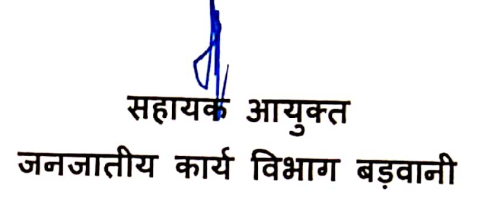 सहायक आयुक्त
जनजातीय कार्य विभाग बड़वानी